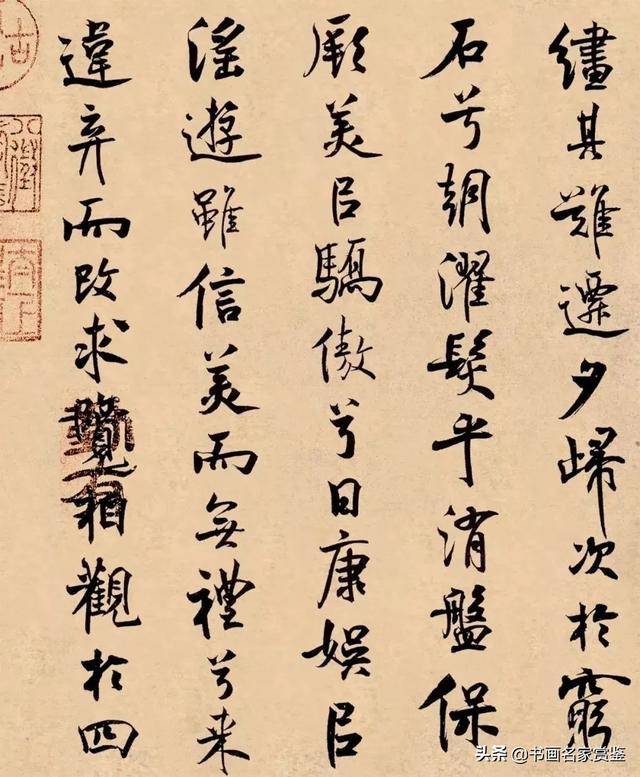 繣其難遷夕歸次於窮
石兮朝濯髮乎洧盤保
厥美㠯驕傲兮日康娛㠯
淫遊雖信美而無禮兮来
違弃而改求覽相觀於四
头条 @书画名家赏鉴